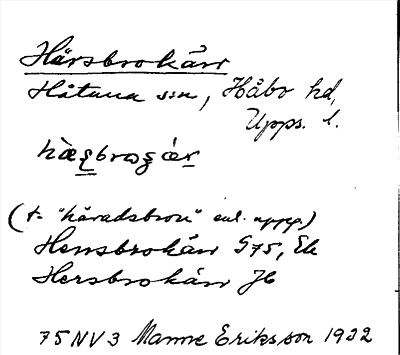 Härsbrokärr
Håtuna ssn, Håbo hd,
Upps. l.
(t. "häradsbron" enl. uppg.)
Hensbrokärr G75, Ek
Hersbrokärr JK
75NV3 Manne Eriksson 1932